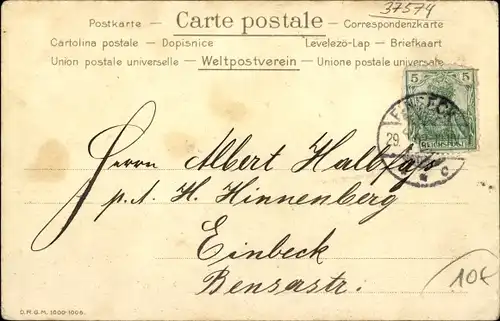 37574
Postkarte — Carte postale — Correspondenzkarte
Cartolina postale — Dopisnice Levelező-Lap — Briefkaart
Union postale universelle — Weltpostverein — Unione postale universale
5 5
EINBECK
29.
c
Herrn Albert
p. A. H. Hinnenberg
Einbeck
Bensastr.
10€
D.R.G.M.